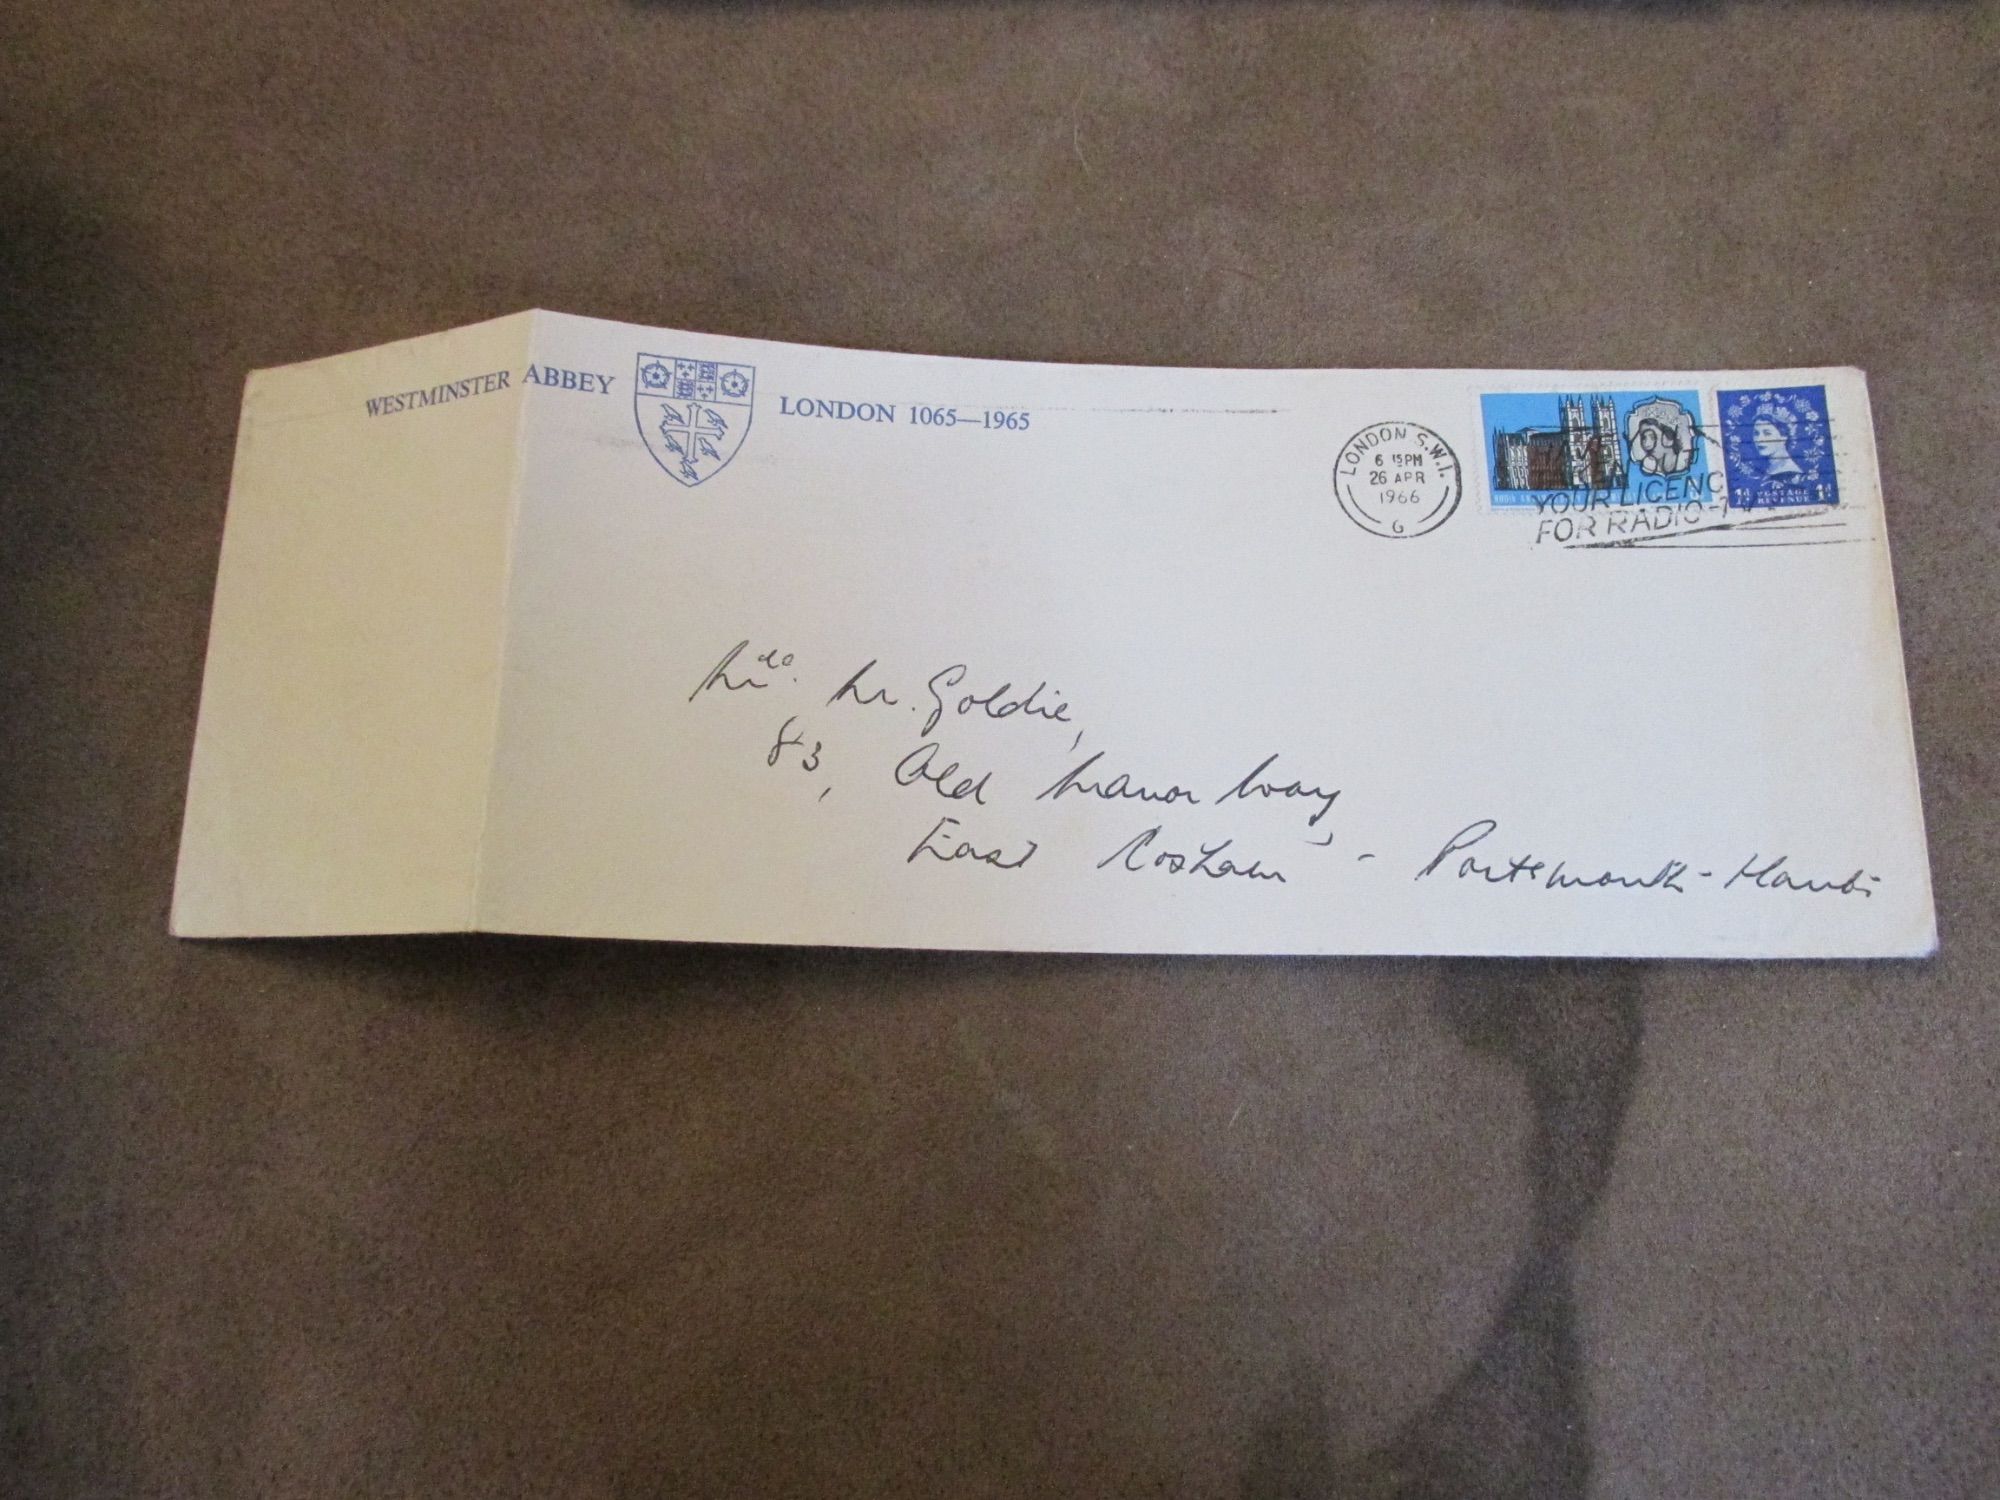 WESTMINSTER ABBEY LONDON 1065—1965
LONDON S.W.1.
6 15 PM
26 APR
1966
G
YOU
OUT
YOUR LICENC
FOR RADIO-TV
POSTAGE
REVENUE
1d 1d
M. Goldie,
83, Old Manor Way,
East Cosham - Portsmouth - Hants